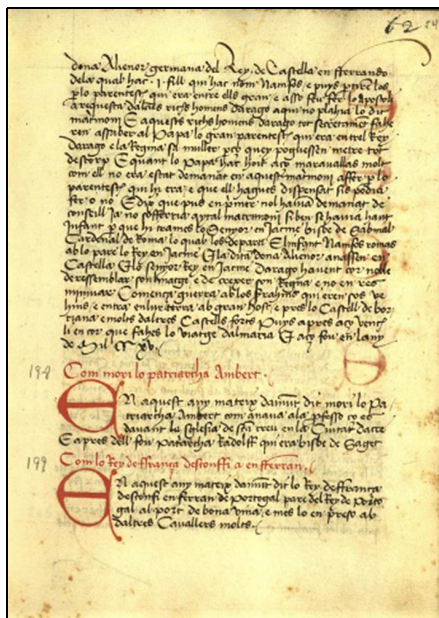 62
dona Alienor germana del Rey de Castella en fferrando
dela qual hac .i. fill qui hac nom Namfos e puys partí los
plo parentesch qui era entre ells gran e asso feu fer lo apostoli
a requesta dalcuns richs homens darago aqui no plahia lo dit
matrimoni E aquests richs homens darago tot secretament fahe
ren assaber al Papa lo gran parentesch qui era entrel Rey
darago e la Regina sa muller per ço que poguessen metre tot
destorp E quant lo Papa hac hoit açò maravallas molt
com ell no era estat demanat en aquest matrimoni affer plo
parentesch qui hi era e que ell hagues dispensat sis podia
fer o no E dix que pus en primer nol havia demanat de
consell ja no sofferria aytal matrimoni si ben se havia haut
infant per que hi trames lo Senyor en Jacme bisbe de Sabina
Cardenal de Roma lo qual los departi E linfant Namfos romas
ab lo pare lo Rey en Jacme E la dita dona Alienor anassen en
Castella E lo senyor Rey en Jacme darago havent cor
de ressemblar son linatge e de crexer son Regne e no en res
minuar Comença guerra ab los Serrahins qui eren sos ve
hins e entra en lur terra ab gran host e pres lo Castell de bor
riana e molts daltres Castells forts Puys apres açò vench
li en cor que fahes lo viatge
de Mil
198
Com mori lo patriarcha Ambert.
En aquest any mateix damunt dit mori lo Pa
triarcha Ambert com anava ala
davant la sglesia de sta creu en la Ciutat dacre
E apres dell fou Patriarcha Radolff qui era bisbe de Saget
199
Com lo Rey de ffrança desconffi a en fferran.
En aquest any mateix damunt dit lo Rey de ffrança
desconfi en ferran de Portogal pare del Rey de Porto
gal al port de bona vina e mes lo en preso ab
daltres Cavallers molts.